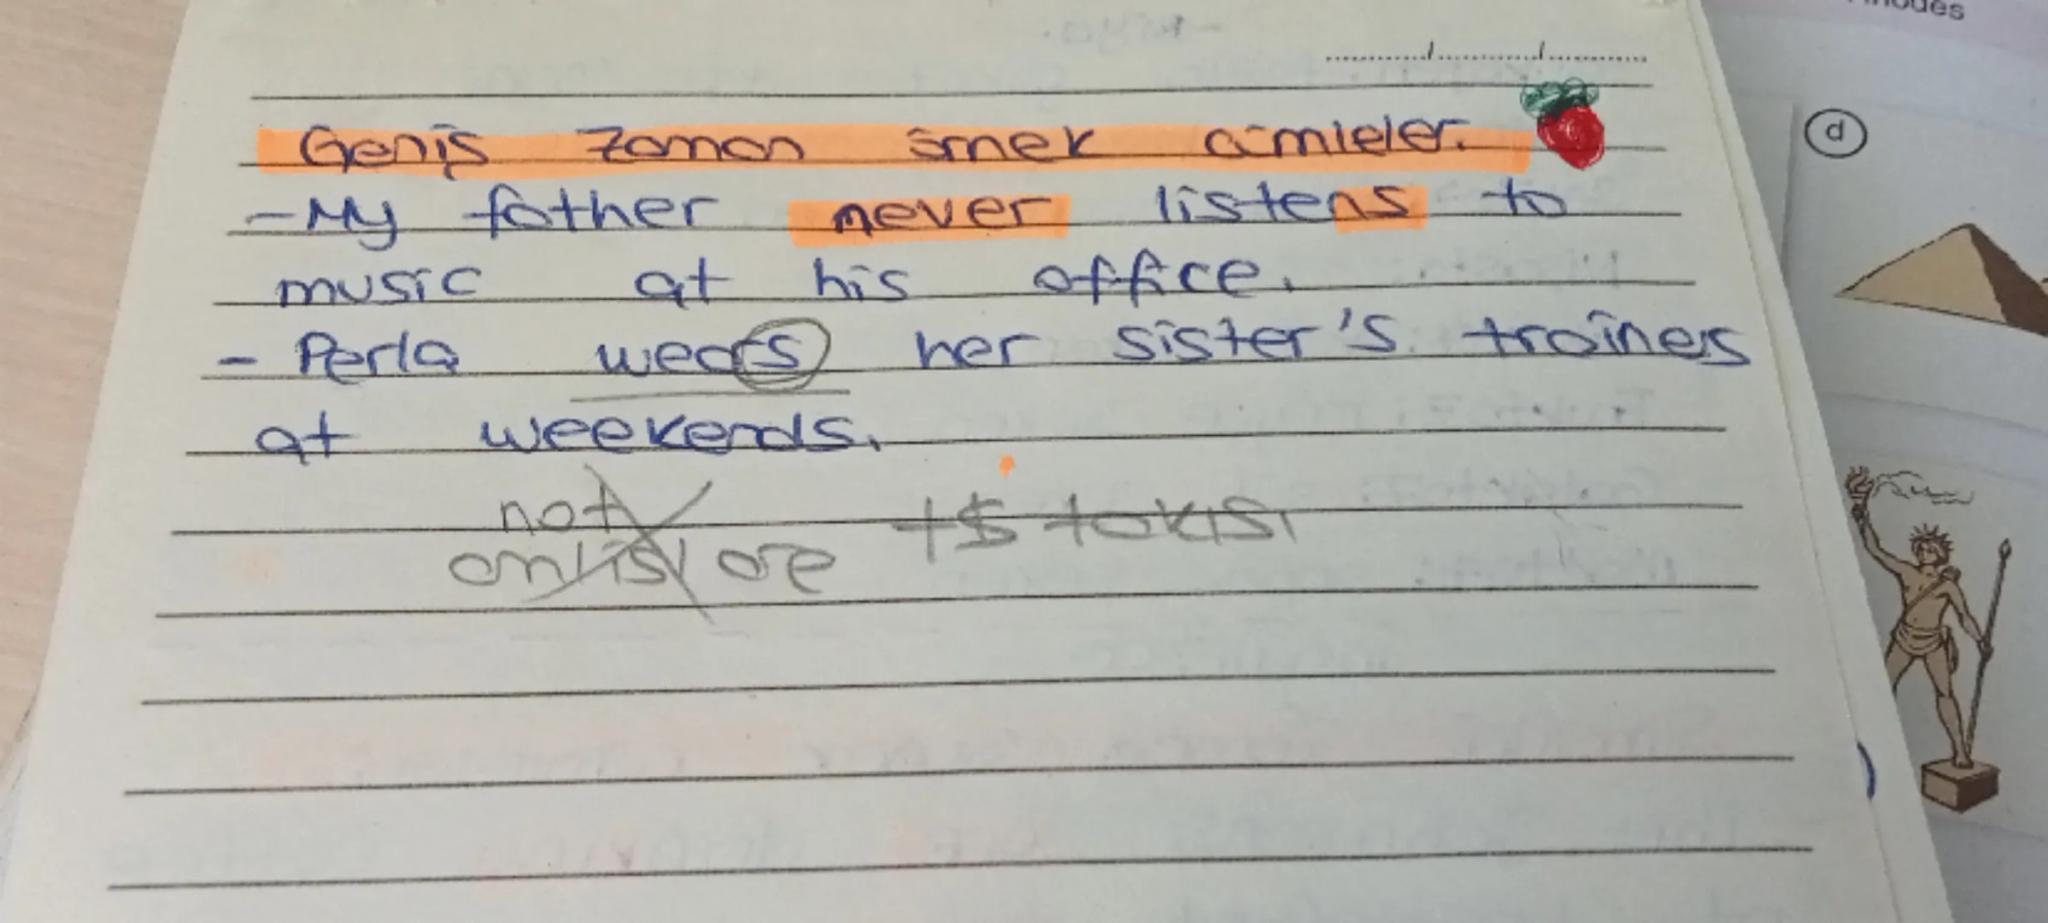 Geniş Zaman örnek cümleler.
-My father never listens to
music at his office.
- Perla wears her sister's trainers
at weekends.
not
am/is/are +s takısı
d